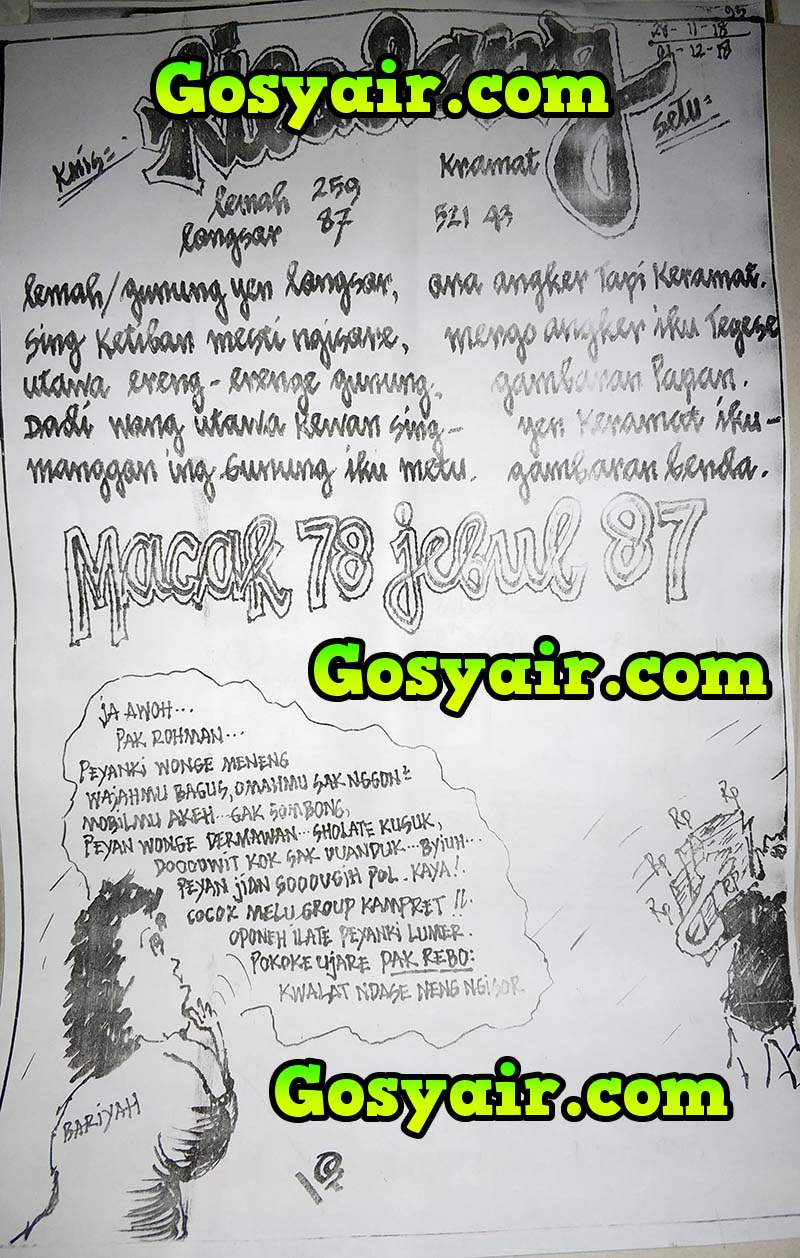 95
28-11-18
01-12-18
Gosyair.com
Kmis=
setu=
lemah 259
longsor 87
Kramat
521 43
lemah/gunung yen longsor,
sing ketiban mesti ngisore,
utawa ereng-erenge gunung.
Dadi wong utawa kewan sing-
manggan ing Gunung iku metu.
ana angker Tapi Keramat.
mergo angker iku Tegese
gambaran Papan.
yen Keramat iku-
gambaran benda.
Macak 78 jebul 87
Gosyair.com
JA AWOH...
PAK ROHMAN...
PEYANKI WONGE MENENG
WAJAHMU BAGUS, OMAHMU SAK NGGON²
MOBILMU AKEH...GAK SOMBONG,
PEYAN WONGE DERMAWAN...SHOLATE KUSUK,
DOOOOWIT KOK SAK UUANDUK...BYJUH...
PEYAN JIAN SOOOUGIH POL. KAYA!.
COCOK MELU GROUP KAMPRET!!.
OPONEH ILATE PEYANKI LUMER.
POKOKE UJARE PAK REBO:
KWALAT NDASE NENG NGISOR
Rp
Rp
Rp
Rp
Rp
BARIYAH
Gosyair.com